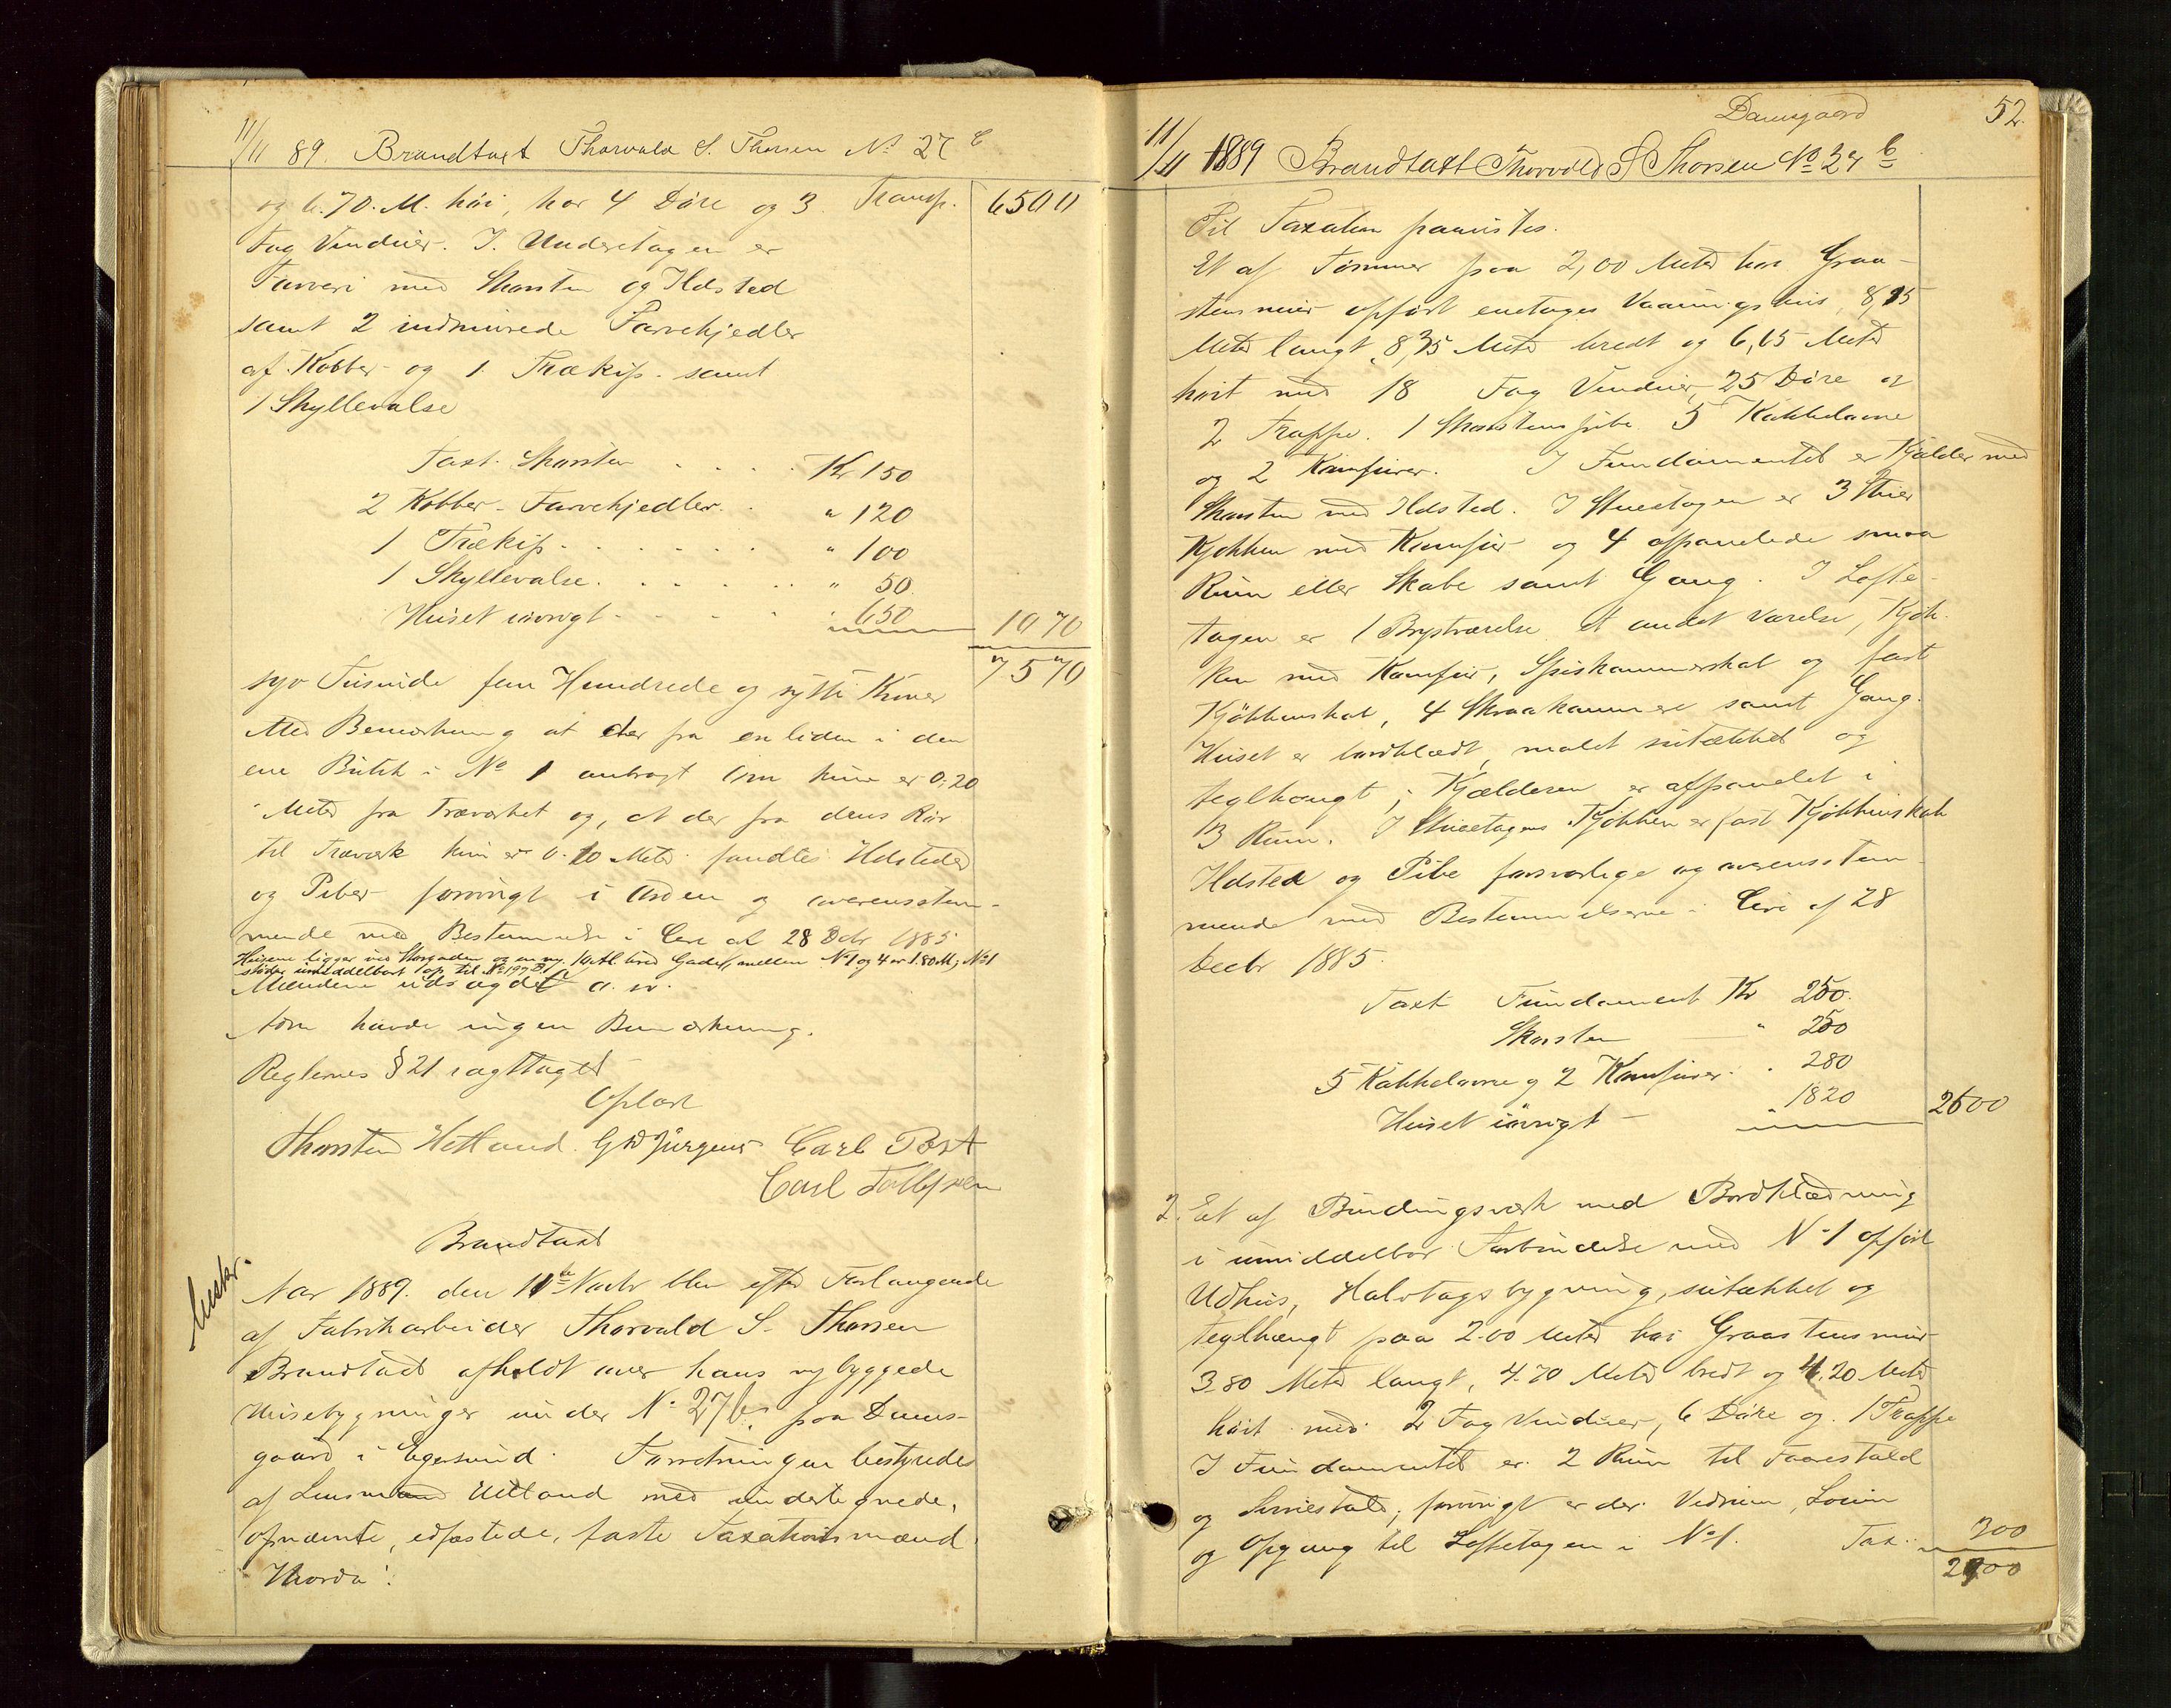 11/11 89. Brandtaxt Thorvald S. Thorsen No 27 b
og 6.70. M. høi, har 4 Døre og 3 Transp. 6500
Fag Vinduer. I. Underetagen er
Farveri med Skorsten og Ildsted
samt 2 indmurede Farvekjedler
af Kobber og 1 Trækip samt
1 Skyllevalse
Taxt. Skorsten . . . . Kr 150
2 Kobber-Farvekjedler. . " 120
1 Trækip . . . . . . " 100
1 Skyllevalse. . . . . . " 50.
Huset iøvrigt - - - - " 650 1070
7570
syv Tusinde fem Hundrede og sytti Kroner
Med Bemærkning at der fra en liden i den
ene Butik i No 1 anbragt Ovn kun er 0,20
Meter fra Træværket og, at der fra dens Rør
til Træværk kun er 0.10 Meter fandtes Ildsteder
og Piber forøvrigt i Orden og overensstem-
mende med Bestemmelse i Circ af 28 Decbr 1885
Husene ligger ved Storgaden og en ny 10 Al. bred Gade, mellem No 1 og 4 er 1.80 M; No 1
støder umiddelbart op til No 197 B.
Mændene udsagdet a. v.
Adm havde ingen Bemærkning.
Reglernes § 21 iagttaget
Oplæst
Thorsten Hetland. G W Jürgens Carl Post
Carl Tollefsen
Brandtaxt
Aar 1889. den 11te Novbr blev efter Forlangende
af Fabrikarbeider Thorvald S. Thorsen
Brandtaxt afholdt over hans nybyggede
Husebygninger under No 27b paa Dams-
gaard i Egersund. Forretningen bestyredes
af Lensmand Hetland med undertegnede,
opnævnte, edfæstede, faste Taxationsmænd
Hvorda:
Damsgaard 52.
11/11 1889 Brandtaxt Thorvald S Thorsen No 27 b
Til Taxation paavistes.
Et af Tømmer paa 2,00 Meter høi Graa-
stensmur opført enetages Vaaningshus, 8,95
Meter langt, 8,35 Meter bredt og 6,65 Meter
høit med 18 Fag Vinduer, 25 Døre og
2 Trappe. 1 Skorstenspibe 5 Kakkelovne
og 2 Komfurer. I Fundamentet er Kjælder med
Skorsten med Ildsted. I Stuetagen er 3 Stuer
Kjøkken med Komfur og 4 afpanelede smaa
Rum eller Skabe samt Gang. I Lofte-
tagen er 1 Brystværelse et andet Værelse, Kjøk-
ken med Komfur, Spiskammerskab og fast
Kjøkkenskab, 4 Skraakammere samt Gang.
Huset er bordklædt, malet sutækket og
teglhængt; Kjælderen er afpanelet i
3 Rum. I Stuetagens Kjøkken er fast Kjøkkenskab
Ildsted og Pibe forsvarlige og overensstem-
mende med Bestemmelserne i Circ af 28
Decbr 1885.
Taxt Fundament Kr 250.
Skorsten " 250
5 Kakkelovne og 2 Komfurer. " 280
Huset iøvrigt - " 1820 2600
2. Et af Bindingsværk med Bordklædning
i umiddelbar Forbindelse med No 1 opført
Udhus, Halvtagsbygning, sutækket og
teglhængt paa 2.00 Meter høi Graastensmur
3.80 Meter langt, 4.70 Meter bredt og 4.20 Meter
høit med 2 Fag Vinduer, 6 Døre og 1 Trappe
I Fundamentet er 2 Rum til Faarestald
og Svinestald; forøvrigt er der Vedrum, Lorum
og Opgang til Loftetagen i No 1. Tax. 300
2900